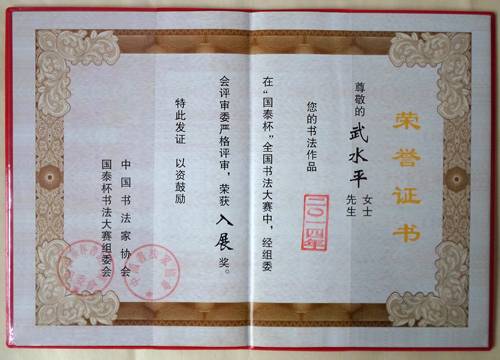 荣誉证书
尊敬的 武水平 女士
先生
您的书法作品
二〇一四年
在“国泰杯”全国书法大赛中，经组委
会评审委严格评审，荣获 入展 奖。
特此发证 以资鼓励
中国书法家协会
国泰杯书法大赛组委会